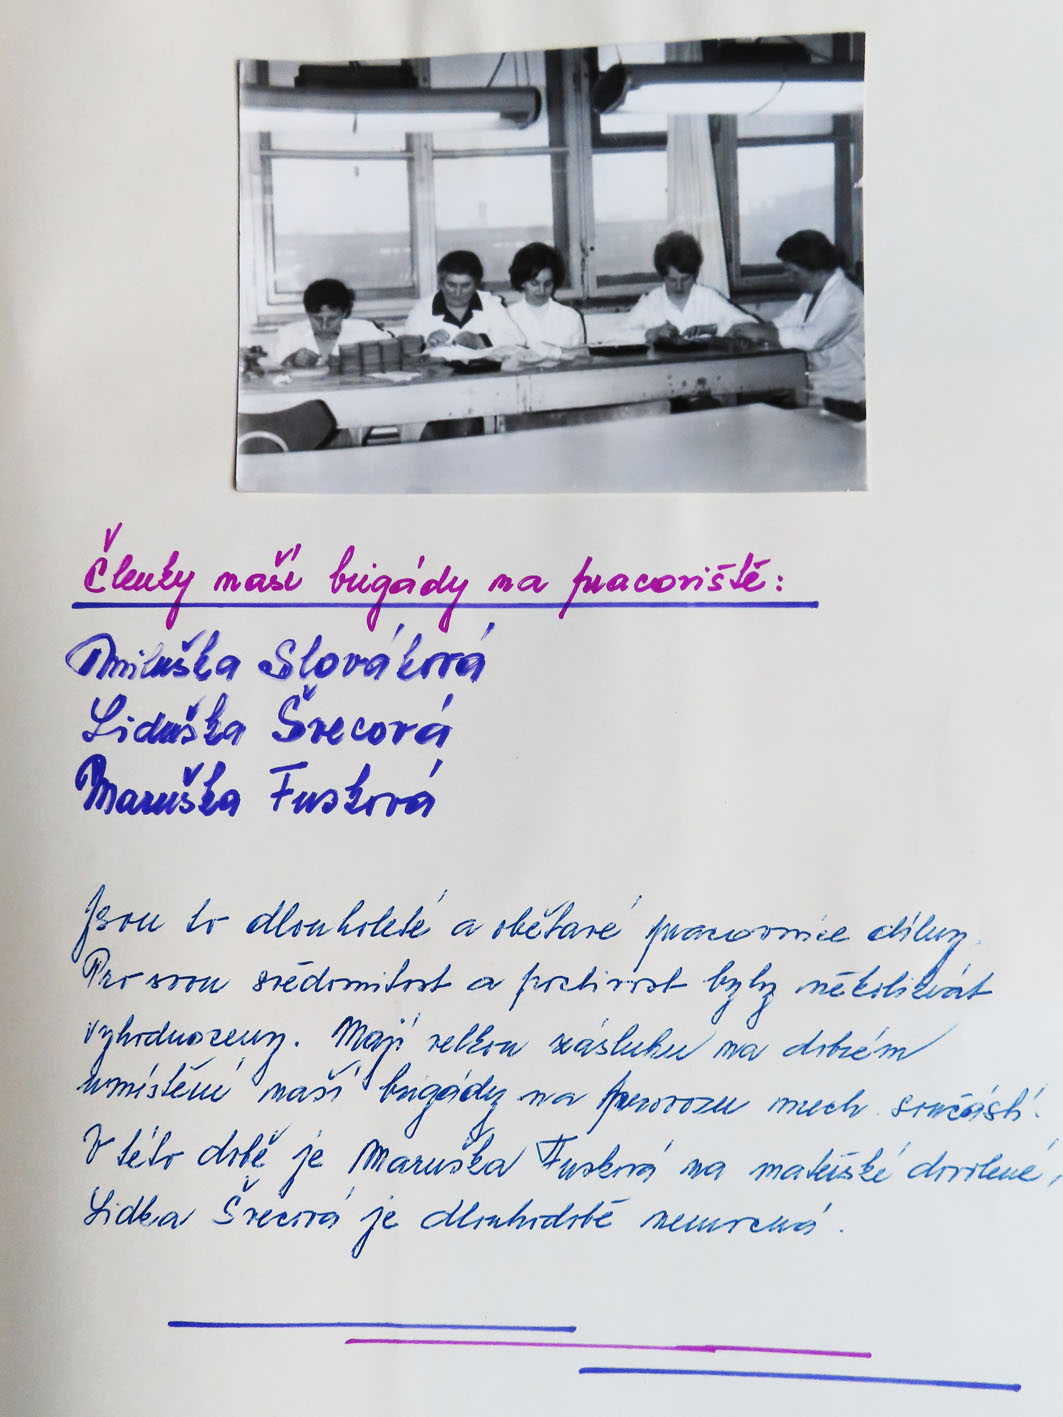 Členky naší brigády na pracoviště:
Miluška Slováková
Liduška Švecová
Maruška Fusková
Jsou to dlouholeté a obětavé pracovnice dílny.
Pro svou svědomitost a poctivost byly několikrát
vyhodnoceny. Mají velkou zásluhu na dobrém
umístění naší brigády na provozu mech. součástí.
V této době je Maruška Fusková na mateřské dovolené,
Lidka Švecová je dlouhodobě nemocná.